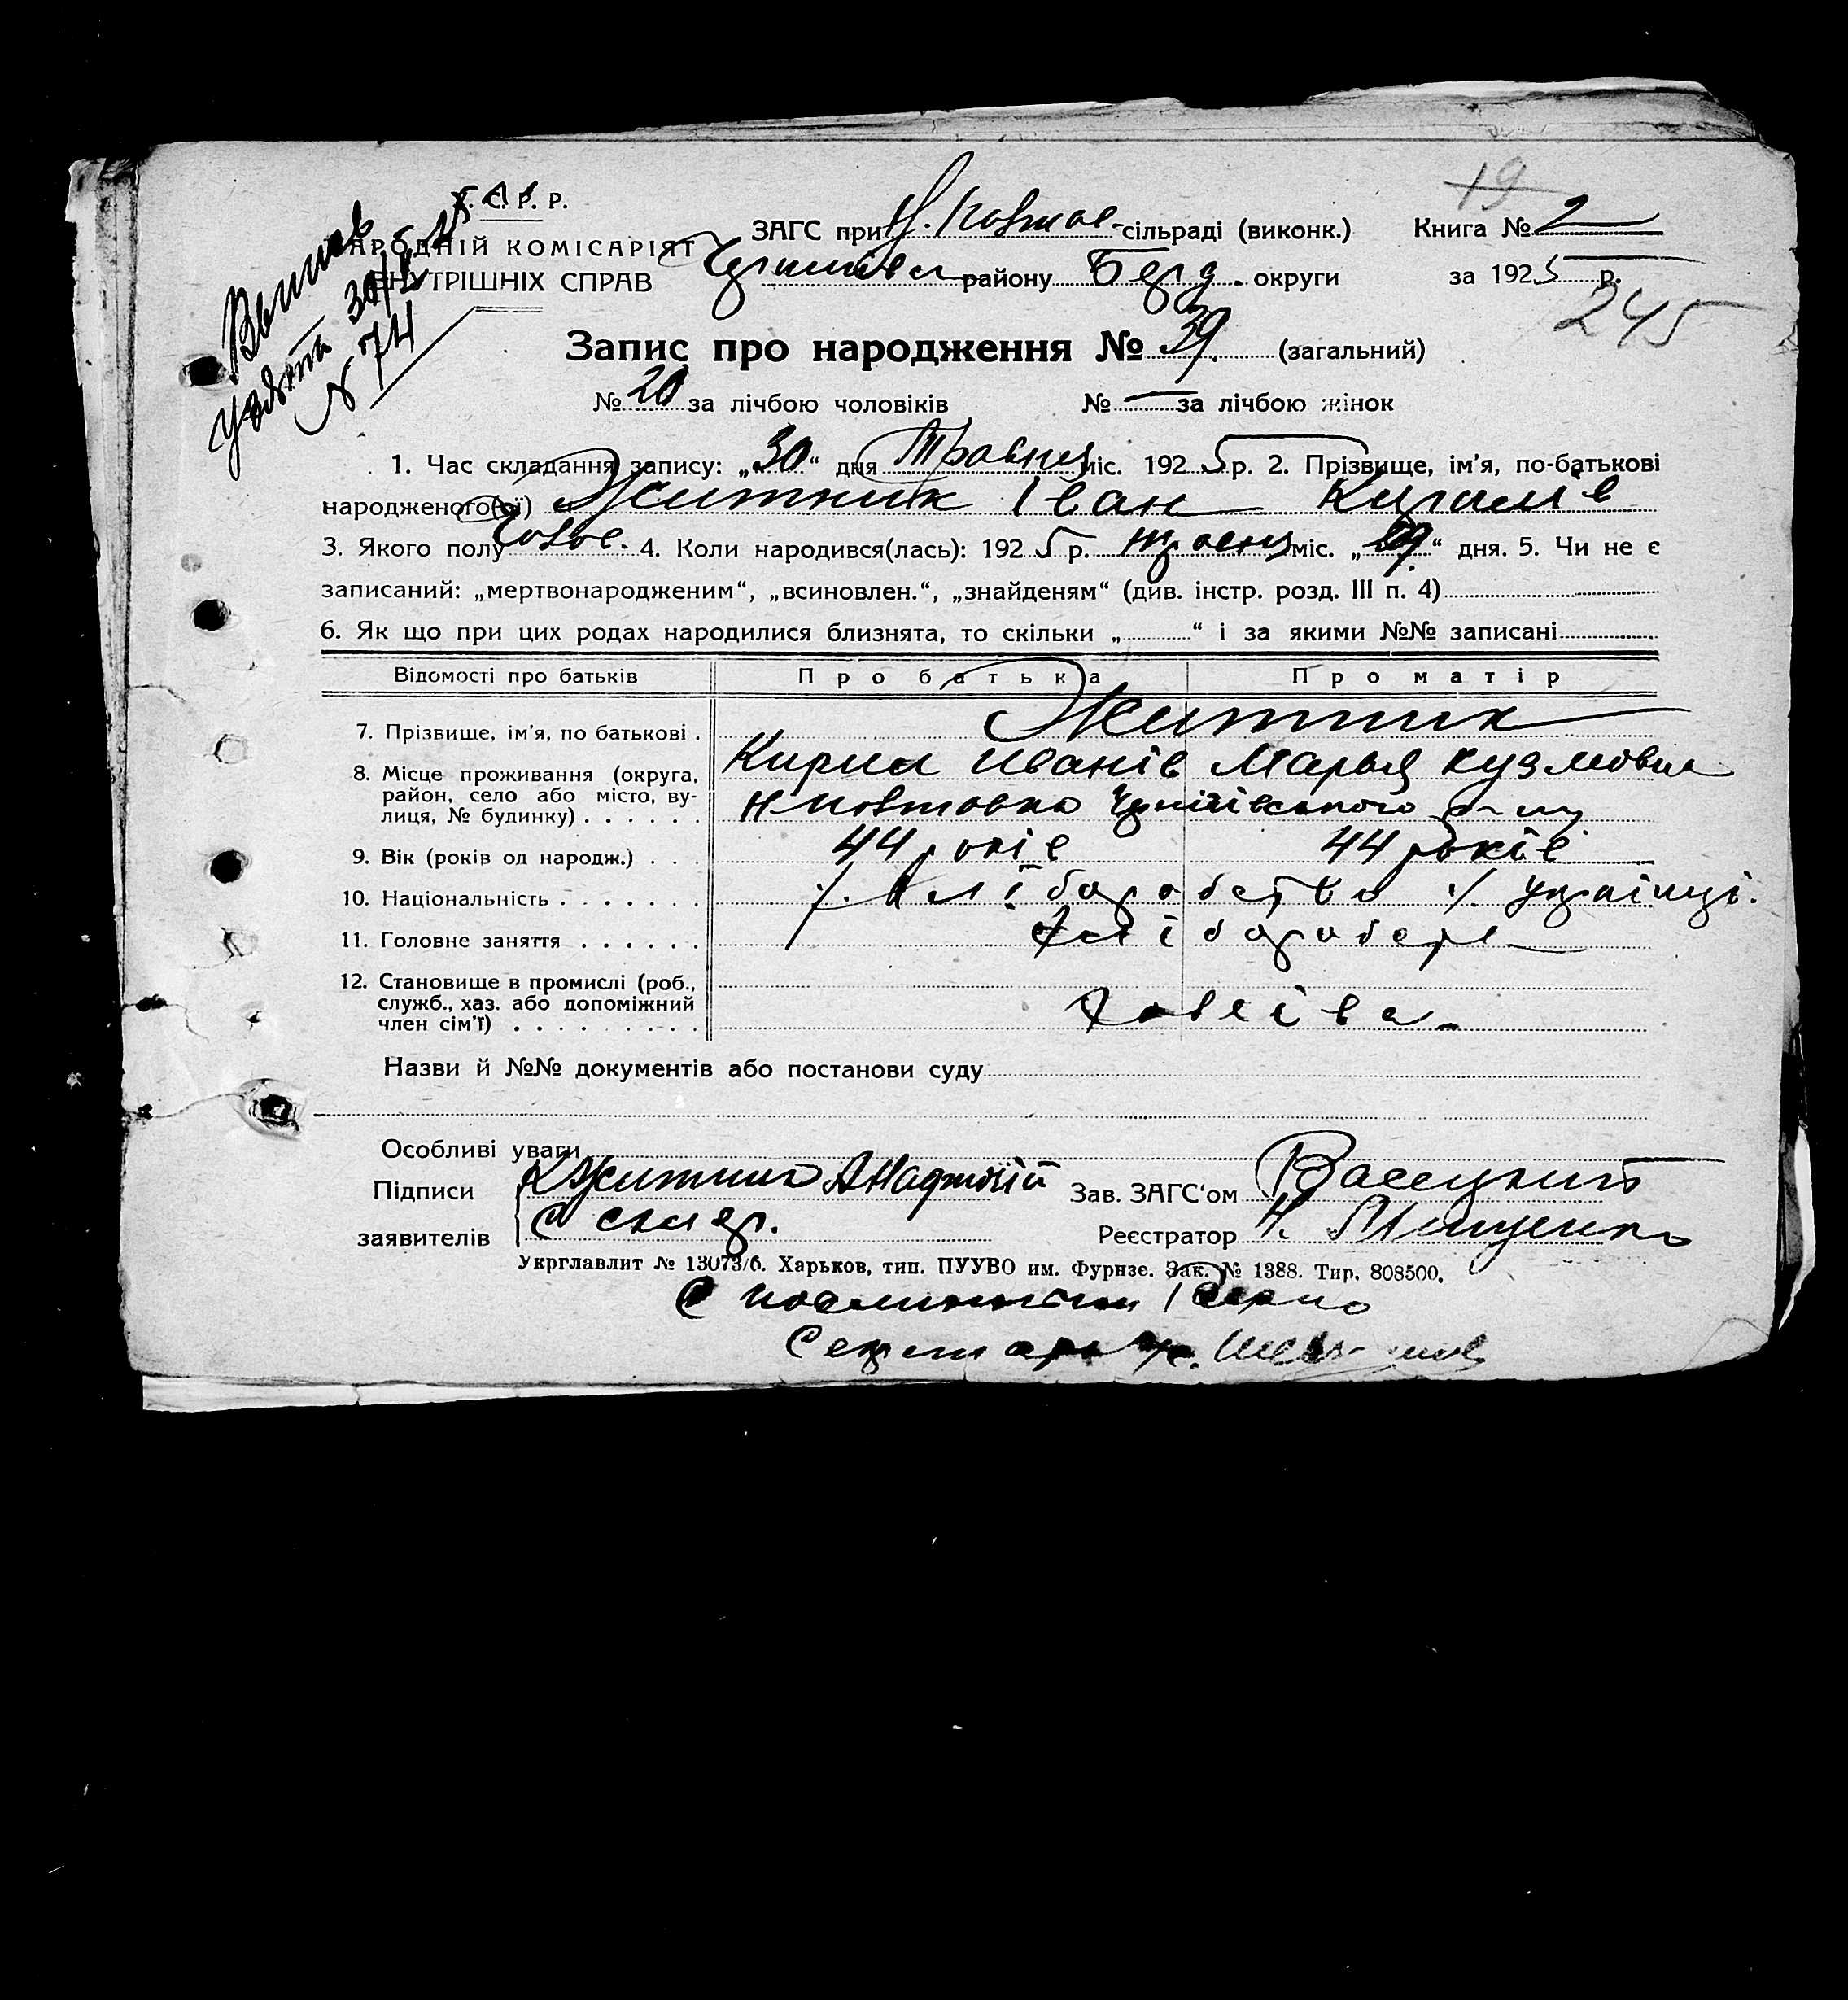 С. Р. Р.
НАРОДНІЙ КОМІСАРІЯТ
ВНУТРІШНІХ СПРАВ
19
ЗАГС при сільраді (виконк.) Книга № 2
району Берд. округи за 1925 р.
245
№ 74
Запис про народження № 39. (загальний)
№ 20 за лічбою чоловіків № — за лічбою жінок
1. Час складання запису: „30“ дня Травня міс. 1925 р. 2. Прізвище, ім'я, по-батькові
народженого(ої) Житник Іван Кирилів
3. Якого полу Чолов. 4. Коли народився(лась): 1925 р. травня міс. „29“ дня. 5. Чи не є
записаний: „мертвонародженим“, „всиновлен.“, „знайденям“ (див. інстр. розд. III п. 4)
6. Як що при цих родах народилися близнята, то скільки „ “ і за якими №№ записані
Відомості про батьків Про батька Про матір
7. Прізвище, ім'я, по батькові . Житник
Кирил Иванів Марья Кузмовна
8. Місце проживання (округа,
район, село або місто, ву-
лиця, № будинку) . . . . . .
9. Вік (років од народж.) . . . 44 років 44 років
10. Національність . . . . . . . Хліборобство українці.
11. Головне заняття . . . . . . Хлібороборе
12. Становище в промислі (роб.,
служб., хаз. або допоміжний
член сім'ї) . . . . . . . . .
Назви й №№ документів або постанови суду
Особливі уваги
Підписи К Житник Зав. ЗАГС'ом Васецкий
заявителів Реєстратор Н. Мищенко
Укрглавлит № 13073/6. Харьков, тип. ПУУВО им. Фурнзе. Зак. № 1388. Тир. 808500.
С верно
Секретарь